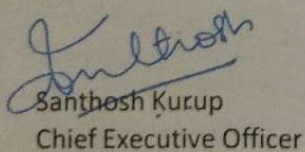 Santhosh
Santhosh Kurup
Chief Executive Officer